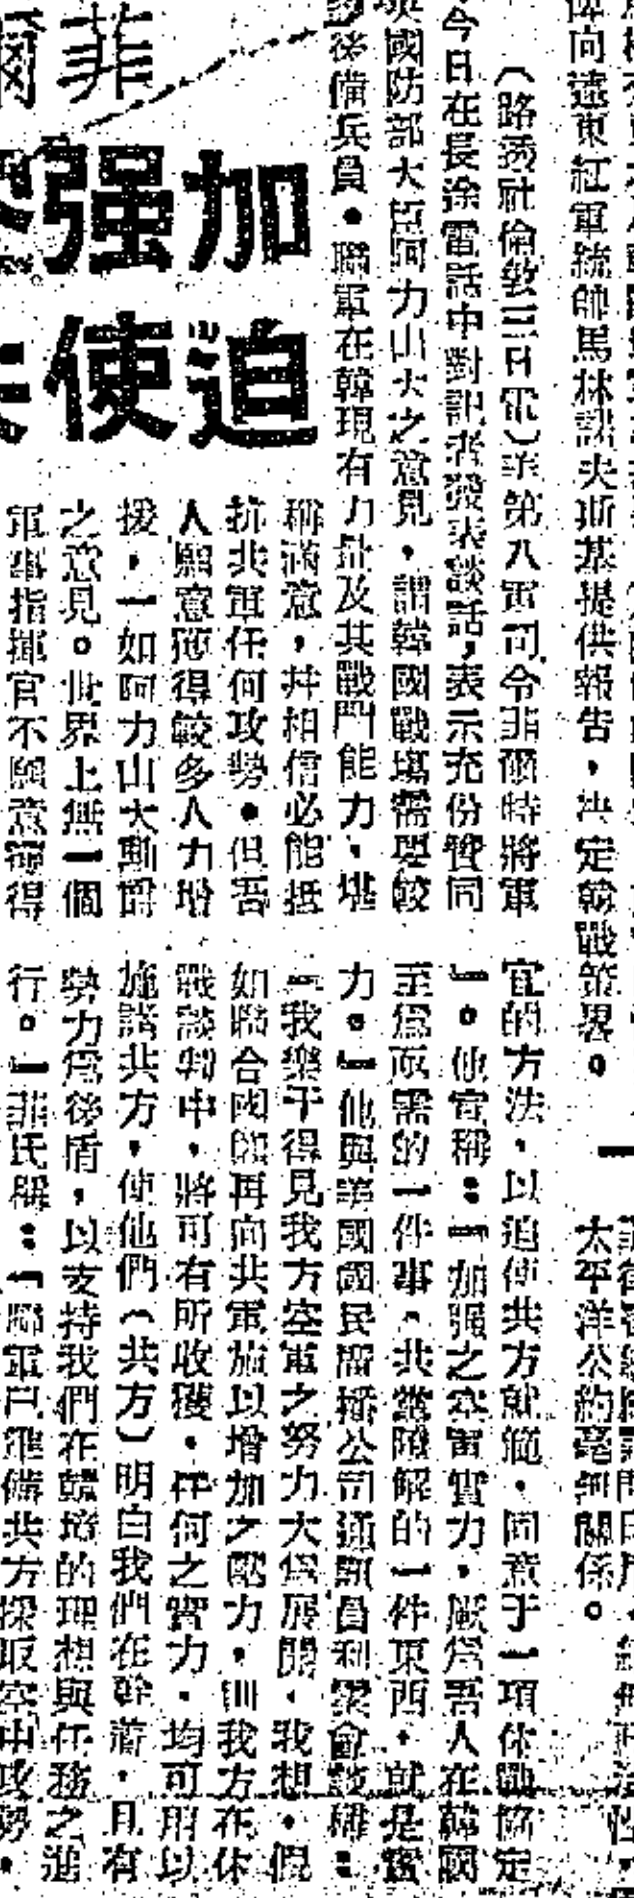 俾向遠東紅軍統帥馬林諾夫斯基提供報告，决定韓戰策畧。
太平洋公約毫無關係。
菲爾
加强
迫使
（路透社倫敦三日電）美第八軍司令菲爾特將軍
今日在長途電話中對記者發表談話，表示充份贊同
英國防部大臣阿力山大之意見，謂韓國戰塲需要較
後備兵員。聯軍在韓現有力量及其戰鬥能力，堪
稱滿意，并相信必能抵
抗共軍任何攻勢。但吾
人願意獲得較多人力增
援，一如阿力山大勳爵
之意見。世界上無一個
軍事指揮官不願意獲得
宜的方法，以迫使共方就範，同意于一項休戰協定
」。他宣稱：「加强之空軍實力，厥爲吾人在韓國
至爲取需的一件事。共黨瞭解的一件東西，就是實
力。」他與美國國民廣播公司通訊員利
「我樂于得見我方空軍之努力大爲展開，我想，假
如聯合國能再向共軍施以增加之壓力，則我方在休
戰談判中，將可有所收獲，任何之實力，均可用以
施諸共方，使他們（共方）明白我們在幹着，且有
勢力爲後盾，以支持我們在韓塲的理想與任務之進
行。」菲氏稱：「聯軍已準備共方採取空中攻勢，